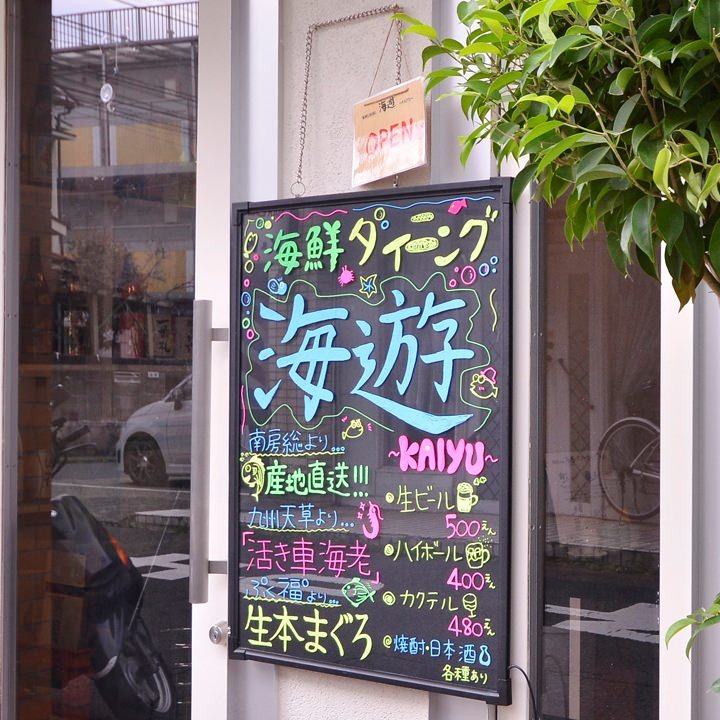 海遊
OPEN
海鮮ダイニング
海遊
~KAIYU~
南房総より...
産地直送!!!
九州天草より...
「活き車海老」
ぷく福°より...
生本まぐろ
生ビール
500えん
ハイボール
400えん
カクテル
480えん
焼酎・日本酒
各種あり